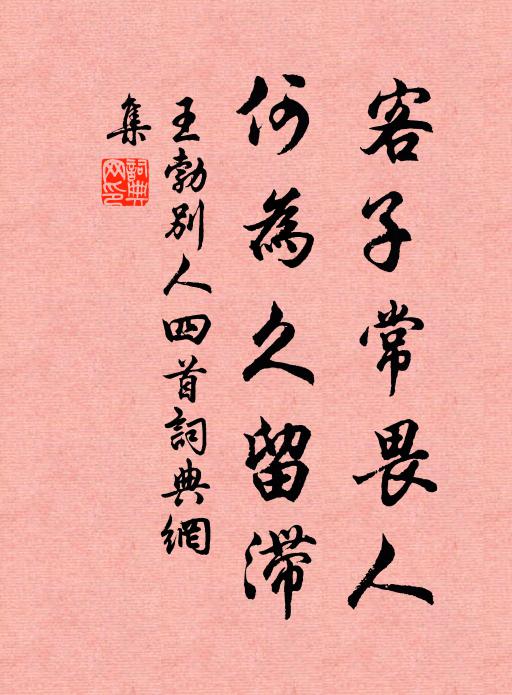 客子常畏人
何為久留滯
王勃別人四首詞典網
集
詞典網印